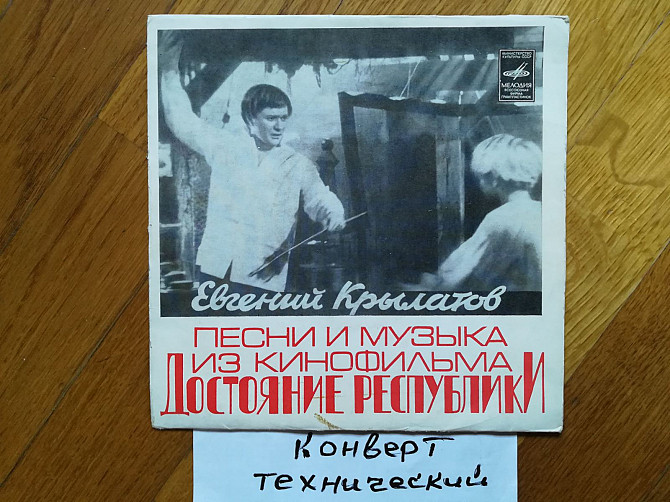 МИНИСТЕРСТВО
КУЛЬТУРЫ СССР
МЕЛОДИЯ
ВСЕСОЮЗНАЯ
ФИРМА
ГРАМПЛАСТИНОК
Евгений Крылатов
ПЕСНИ И МУЗЫКА
ИЗ КИНОФИЛЬМА
ДОСТОЯНИЕ РЕСПУБЛИКИ
Конверт
технический